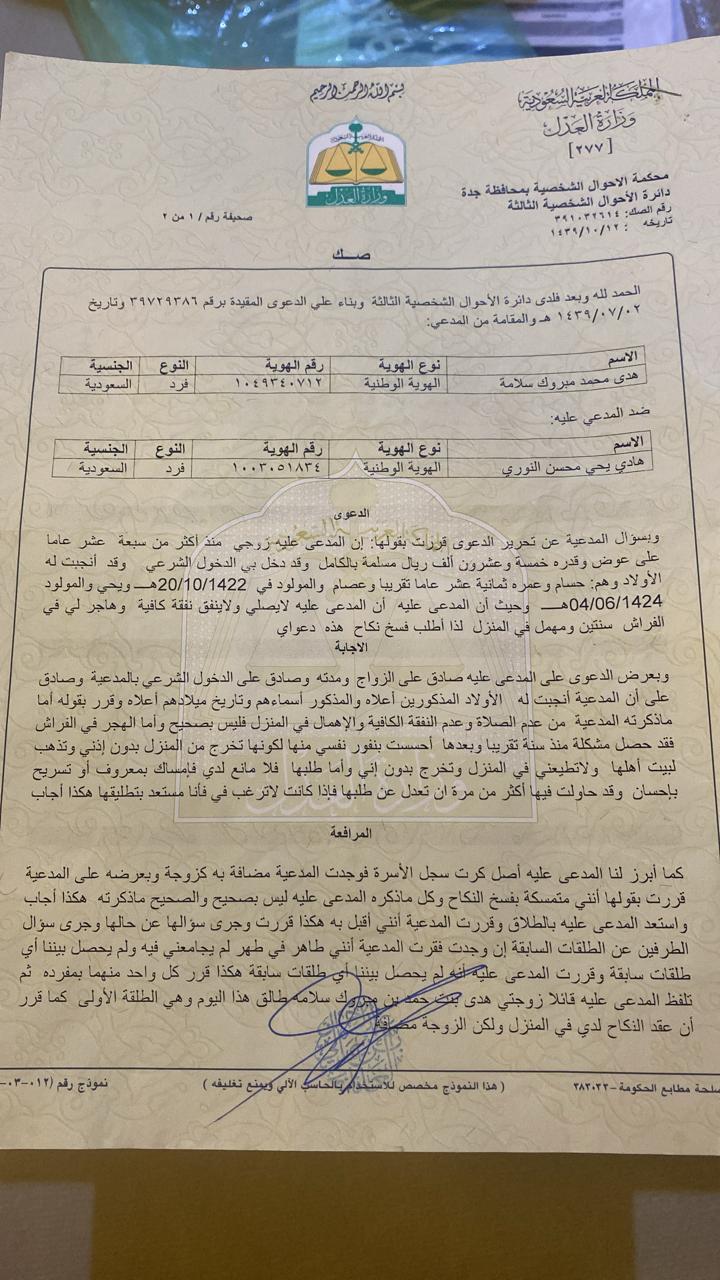 بسم الله الرحمن الرحيم
المملكة العربية السعودية
وزارة العدل
[٢٧٧]
وزارة العدل
محكمة الاحوال الشخصية بمحافظة جدة
دائرة الأحوال الشخصية الثالثة
رقم الصك: ٣٩١٠٣٢٦١٤
تاريخه : ١٤٣٩/١٠/١٢
صحيفة رقم / ١ من ٢
صك
الحمد لله وبعد فلدى دائرة الأحوال الشخصية الثالثة وبناء علي الدعوى المقيدة برقم ٣٩٧٢٩٣٨٦ وتاريخ
١٤٣٩/٠٧/٠٢ هـ والمقامة من المدعي:
الاسم نوع الهوية رقم الهوية النوع الجنسية
هدى محمد مبروك سلامة الهوية الوطنية ١٠٤٩٣٤٠٧١٢ فرد السعودية
ضد المدعي عليه:
الاسم نوع الهوية رقم الهوية النوع الجنسية
هادي يحي محسن النوري الهوية الوطنية ١٠٠٣٠٥١٨٣٤ فرد السعودية
الدعوى
وبسؤال المدعية عن تحرير الدعوى قررت بقولها: إن المدعى عليه زوجي منذ أكثر من سبعة عشر عاما
على عوض وقدره خمسة وعشرون ألف ريال مسلمة بالكامل وقد دخل بي الدخول الشرعي وقد أنجبت له
الأولاد وهم: حسام وعمره ثمانية عشر عاما تقريبا وعصام والمولود في 20/10/1422هـ ويحي والمولود
04/06/1424هـ وحيث أن المدعى عليه أن المدعى عليه لايصلي ولاينفق نفقة كافية وهاجر لي في
الفراش سنتين ومهمل في المنزل لذا أطلب فسخ نكاح هذه دعواي
الاجابة
وبعرض الدعوى على المدعى عليه صادق على الزواج ومدته وصادق على الدخول الشرعي بالمدعية وصادق
على أن المدعية أنجبت له الأولاد المذكورين أعلاه والمذكور أسماءهم وتاريخ ميلادهم أعلاه وقرر بقوله أما
ماذكرته المدعية من عدم الصلاة وعدم النفقة الكافية والإهمال في المنزل فليس بصحيح وأما الهجر في الفراش
فقد حصل مشكلة منذ سنة تقريبا وبعدها أحسست بنفور نفسي منها لكونها تخرج من المنزل بدون إذني وتذهب
لبيت أهلها ولاتطيعني في المنزل وتخرج بدون إني وأما طلبها فلا مانع لدي فإمساك بمعروف أو تسريح
بإحسان وقد حاولت فيها أكثر من مرة ان تعدل عن طلبها فإذا كانت لاترغب في فأنا مستعد بتطليقها هكذا أجاب
المرافعة
كما أبرز لنا المدعى عليه أصل كرت سجل الأسرة فوجدت المدعية مضافة به كزوجة وبعرضه على المدعية
قررت بقولها أنني متمسكة بفسخ النكاح وكل ماذكره المدعى عليه ليس بصحيح والصحيح ماذكرته هكذا أجاب
واستعد المدعى عليه بالطلاق وقررت المدعية أنني أقبل به هكذا قررت وجرى سؤالها عن حالها وجرى سؤال
الطرفين عن الطلقات السابقة إن وجدت فقرت المدعية أنني طاهر في طهر لم يجامعني فيه ولم يحصل بيننا أي
طلقات سابقة وقررت المدعى عليه أنه لم يحصل بيننا أي طلقات سابقة هكذا قرر كل واحد منهما بمفرده ثم
تلفظ المدعى عليه قائلا زوجتي هدى بنت حمد بن مبروك سلامه طالق هذا اليوم وهي الطلقة الأولى كما قرر
أن عقد النكاح لدي في المنزل ولكن الزوجة مضافة
صلحة مطابع الحكومة - ٢٨٣٠٢٢ ( هذا النموذج مخصص للاستخدام بالحاسب الآلي ويمنع تغليفه ) نموذج رقم (١٢-٠٣-٠